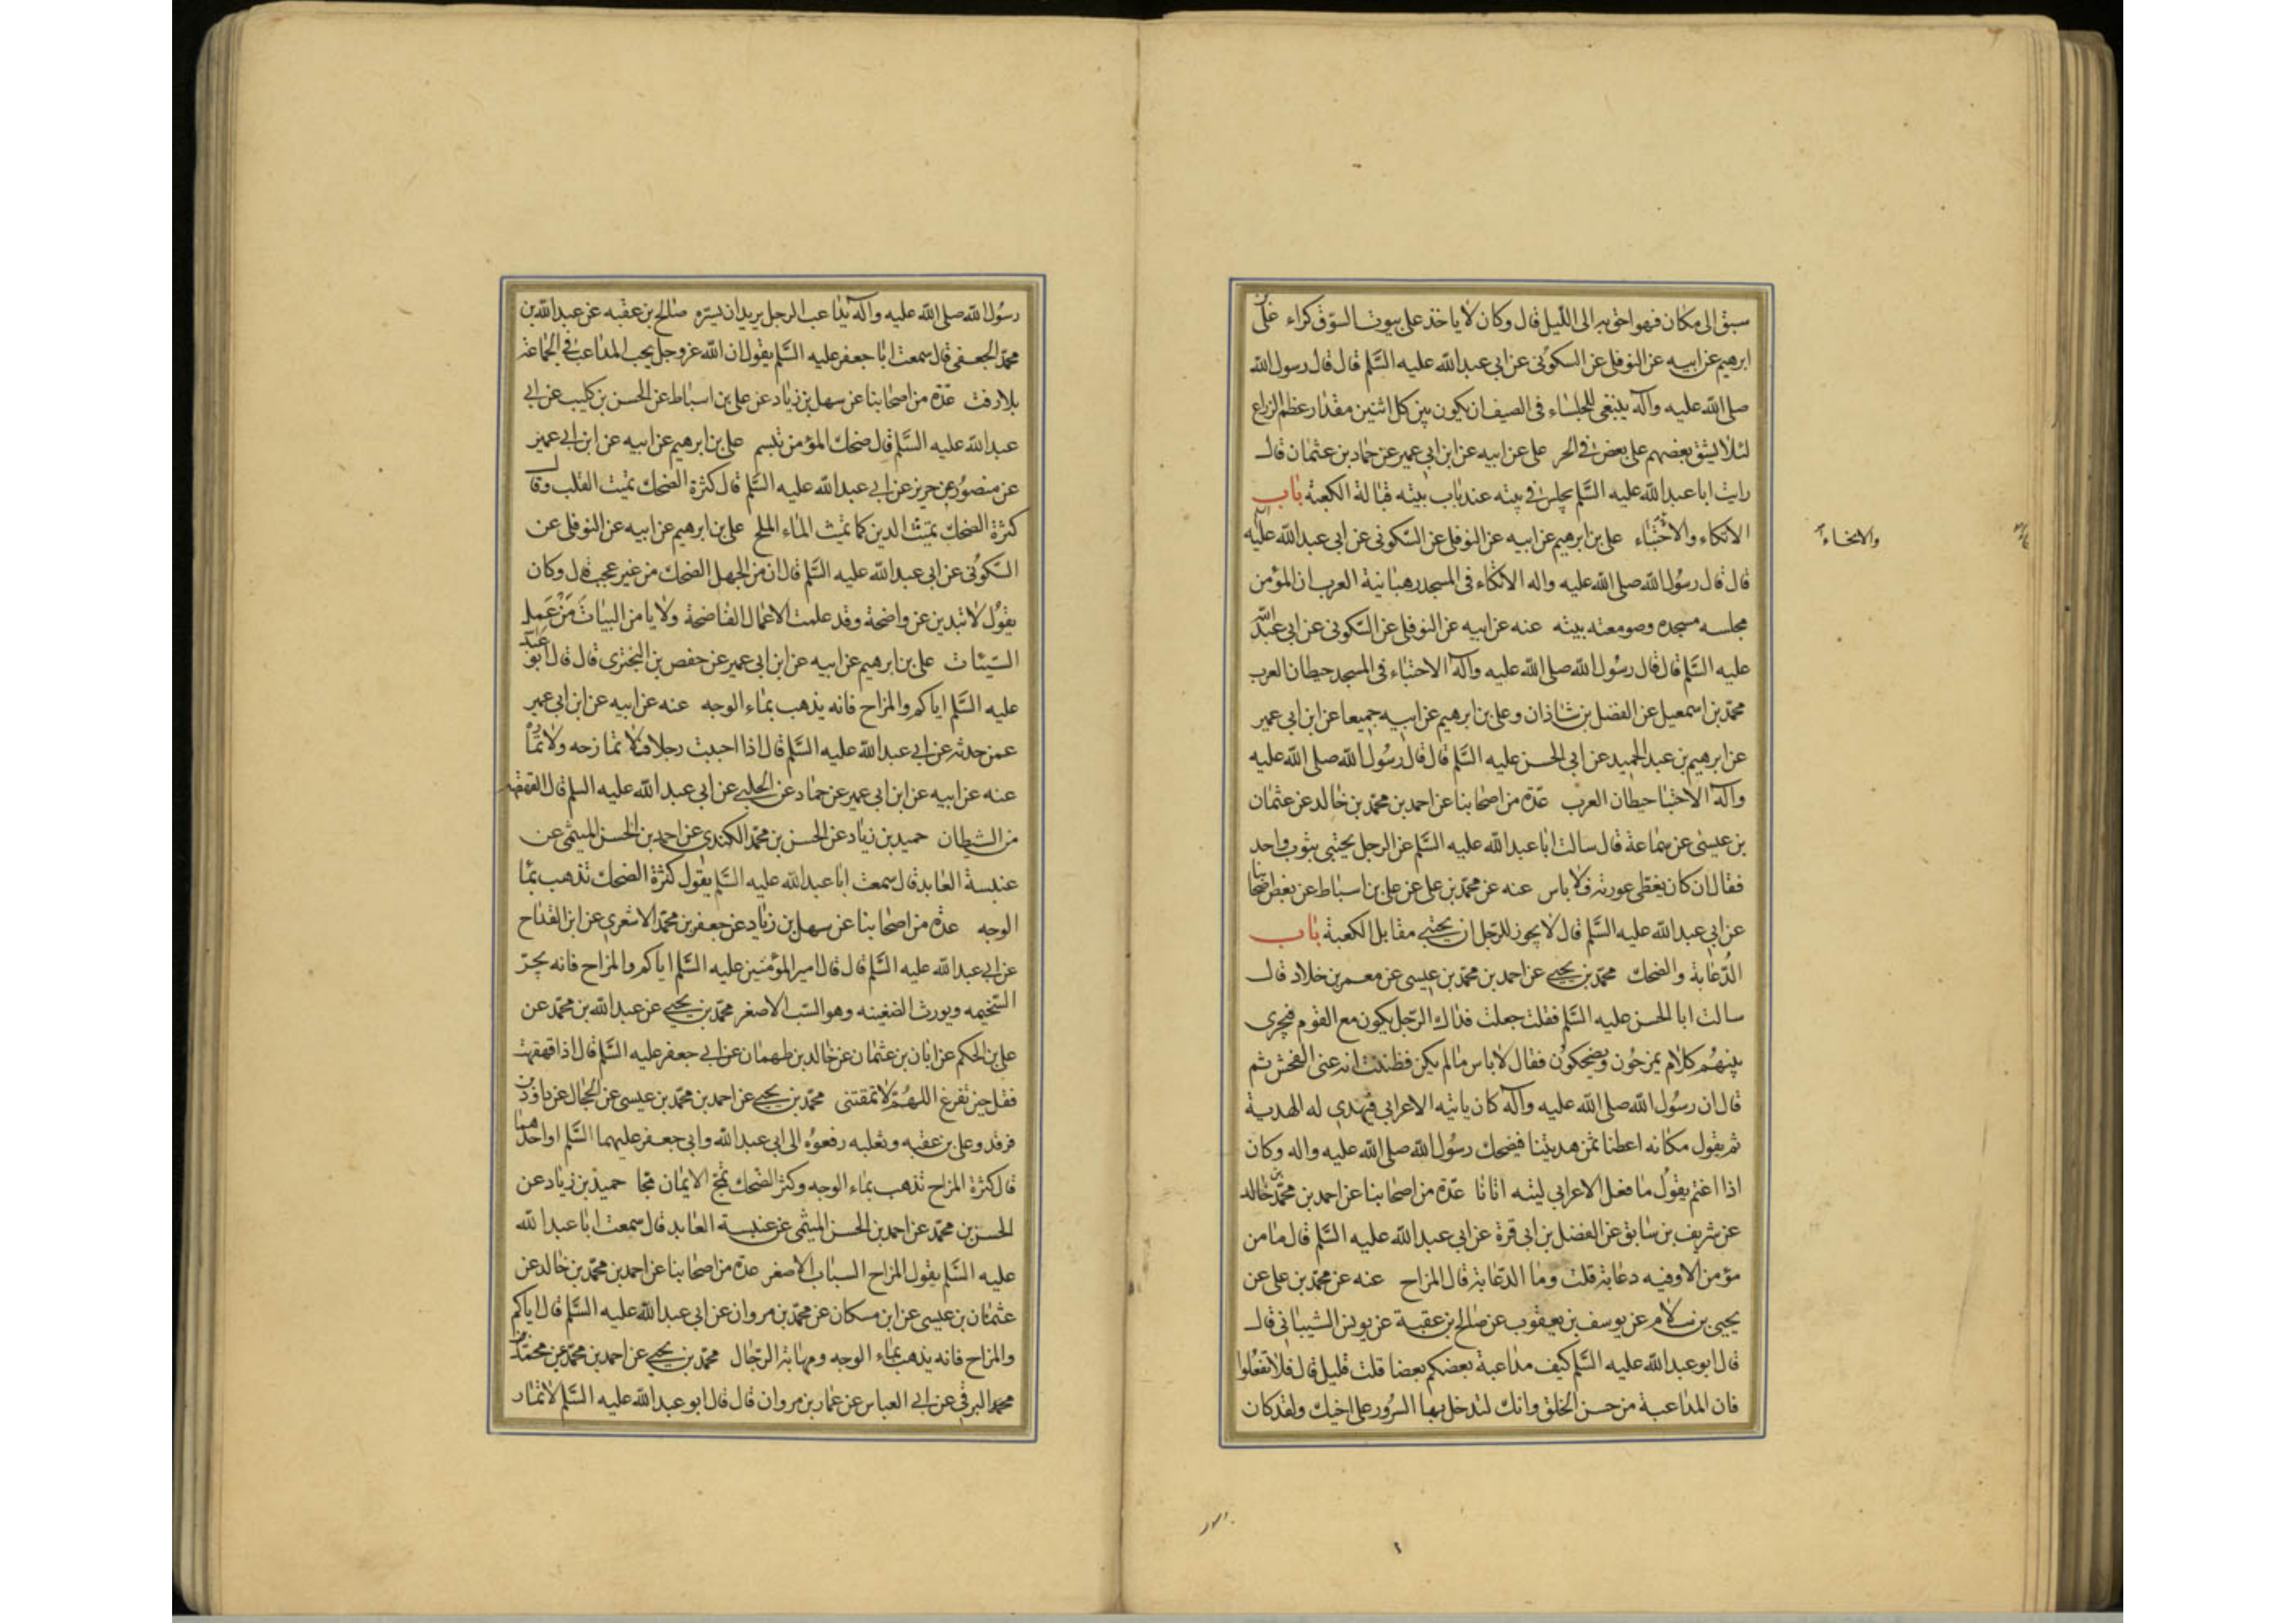 سبق الى مكان فهو احق به الى الليل قال وكان لا ياخذ على بيوت السوق كراء على بن
ابرهيم عن ابيه عن النوفلى عن السكونى عن ابى عبد الله عليه السلم قال قال رسول الله
صلى الله عليه وآله ينبغى للجلساء فى الصيف ان يكون بين كل اثنين مقدار عظم الزراع
لئلا يشق بعضهم على بعض فى الحر على عن ابيه عن ابن ابى عمير عن حماد بن عثمان قال
رايت ابا عبد الله عليه السلم يجلس فى بيته عند باب بيته قبالة الكعبة باب
الاتكاء والاحتباء على بن ابرهيم عن ابيه عن النوفلى عن السكونى عن ابى عبد الله عليه السلم
والاتخاء
قال قال رسول الله صلى الله عليه واله الاتكاء فى المسجد رهبانية العرب ان المؤمن
مجلسه مسجده وصومعته بيته عنه عن ابيه عن النوفلى عن السكونى عن ابى عبد الله
عليه السلم قال قال رسول الله صلى الله عليه وآله الاحتباء فى المسجد حيطان العرب
محمد بن اسمعيل عن الفضل بن شاذان وعلى بن ابرهيم عن ابيه جميعا عن ابن ابى عمير
عن ابرهيم بن عبد الحميد عن ابى الحسن عليه السلم قال قال رسول الله صلى الله عليه
وآله الاحتبا حيطان العرب عدة من اصحابنا عن احمد بن محمد بن خالد عن عثمان
بن عيسى عن سماعة قال سالت ابا عبد الله عليه السلم عن الرجل يحتبى بثوب واحد
فقال ان كان يغطى عورته فلا باس عنه عن محمد بن على عن على بن اسباط عن بعض اصحابنا
عن ابى عبد الله عليه السلم قال لا يجوز للرجل ان يحتبى مقابل الكعبة باب
الدعابة والضحك محمد بن يحيى عن احمد بن محمد بن عيسى عن معمر بن خلاد قال
سالت ابا الحسن عليه السلم فقلت جعلت فداك الرجل يكون مع القوم فيجرى
بينهم كلام يمزحون ويضحكون فقال لا باس ما لم يكن فظننت انه عنى الفحش ثم
قال ان رسول الله صلى الله عليه وآله كان ياتيه الاعرابى فيهدى له الهدية
ثم يقول مكانه اعطنا ثمن هديتنا فيضحك رسول الله صلى الله عليه واله وكان
اذا اغتم يقول ما فعل الاعرابى ليته اتانا عدة من اصحابنا عن احمد بن محمد بن خالد
عن شريف بن سابق عن الفضل بن ابى قرة عن ابى عبد الله عليه السلم قال ما من
مؤمن الا وفيه دعابة قلت وما الدعابة قال المزاح عنه عن محمد بن على عن
يحيى بن سلام عن يوسف بن يعقوب عن صالح بن عقبة عن يونس الشيبانى قال
قال ابو عبد الله عليه السلم كيف مداعبة بعضكم بعضا قلت قليل قال فلا تفعلوا
فان المداعبة من حسن الخلق وانك لتدخل بها السرور على اخيك ولقد كان
رسول الله صلى الله عليه وآله يداعب الرجل يريد ان يسره صالح بن عقبه عن عبد الله بن
محمد الجعفى قال سمعت ابا جعفر عليه السلم يقول ان الله عز وجل يحب المداعب فى الجماعة
بلا رفث عدة من اصحابنا عن سهل بن زياد عن على بن اسباط عن الحسن بن كليب عن ابى
عبد الله عليه السلم قال ضحك المؤمن تبسم على بن ابرهيم عن ابيه عن ابن ابى عمير
عن منصور عن حريز عن ابى عبد الله عليه السلم قال كثرة الضحك تميت القلب وقال
كثرة الضحك تميث الدين كما تميث الماء الملح على بن ابرهيم عن ابيه عن النوفلى عن
السكونى عن ابى عبد الله عليه السلم قال ان من الجهل الضحك من غير عجب قال وكان
يقول لا تبدين عن واضحة وقد علمت الاعمال الفاضحة ولا يامن البيات من عمل
السيئات على بن ابرهيم عن ابيه عن ابن ابى عمير عن حفص بن البخترى قال قال ابو عبد الله
عليه السلم اياكم والمزاح فانه يذهب بماء الوجه عنه عن ابيه عن ابن ابى عمير
عمن حدثه عن ابى عبد الله عليه السلم قال اذا احببت رجلا فلا تمازحه ولا تماره
عنه عن ابيه عن ابن ابى عمير عن حماد عن الحلبى عن ابى عبد الله عليه السلم قال القهقهة
من الشيطان حميد بن زياد عن الحسن بن محمد الكندى عن احمد بن الحسن الميثمى عن
عنبسة العابد قال سمعت ابا عبد الله عليه السلم يقول كثرة الضحك تذهب بماء
الوجه عدة من اصحابنا عن سهل بن زياد عن جعفر بن محمد الاشعرى عن ابن القداح
عن ابى عبد الله عليه السلم قال قال امير المؤمنين عليه السلم اياكم والمزاح فانه يجر
السخيمه ويورث الضغينه وهو السب الاصغر محمد بن يحيى عن عبد الله بن محمد عن
على بن الحكم عن ابان بن عثمان عن خالد بن طهمان عن ابى جعفر عليه السلم قال اذا قهقهت
فقل حين تفرغ اللهم لا تمقتنى محمد بن يحيى عن احمد بن محمد بن عيسى عن الحجال عن داود بن
فرقد وعلى بن عقبه وثعلبه رفعوه الى ابى عبد الله وابى جعفر عليهما السلم او احدهما
قال كثرة المزاح تذهب بماء الوجه وكثر الضحك تمج الايمان مجا حميد بن زياد عن
الحسن بن محمد عن احمد بن الحسن الميثمى عن عنبسة العابد قال سمعت ابا عبد الله
عليه السلم يقول المزاح السباب الاصغر عدة من اصحابنا عن احمد بن محمد بن خالد عن
عثمان بن عيسى عن ابن مسكان عن محمد بن مروان عن ابى عبد الله عليه السلم قال اياكم
والمزاح فانه يذهب بماء الوجه ومهابة الرجال محمد بن يحيى عن احمد بن محمد عن محمد بن
محمد البرقى عن ابى العباس عن عمار بن مروان قال قال ابو عبد الله عليه السلم لا تمار